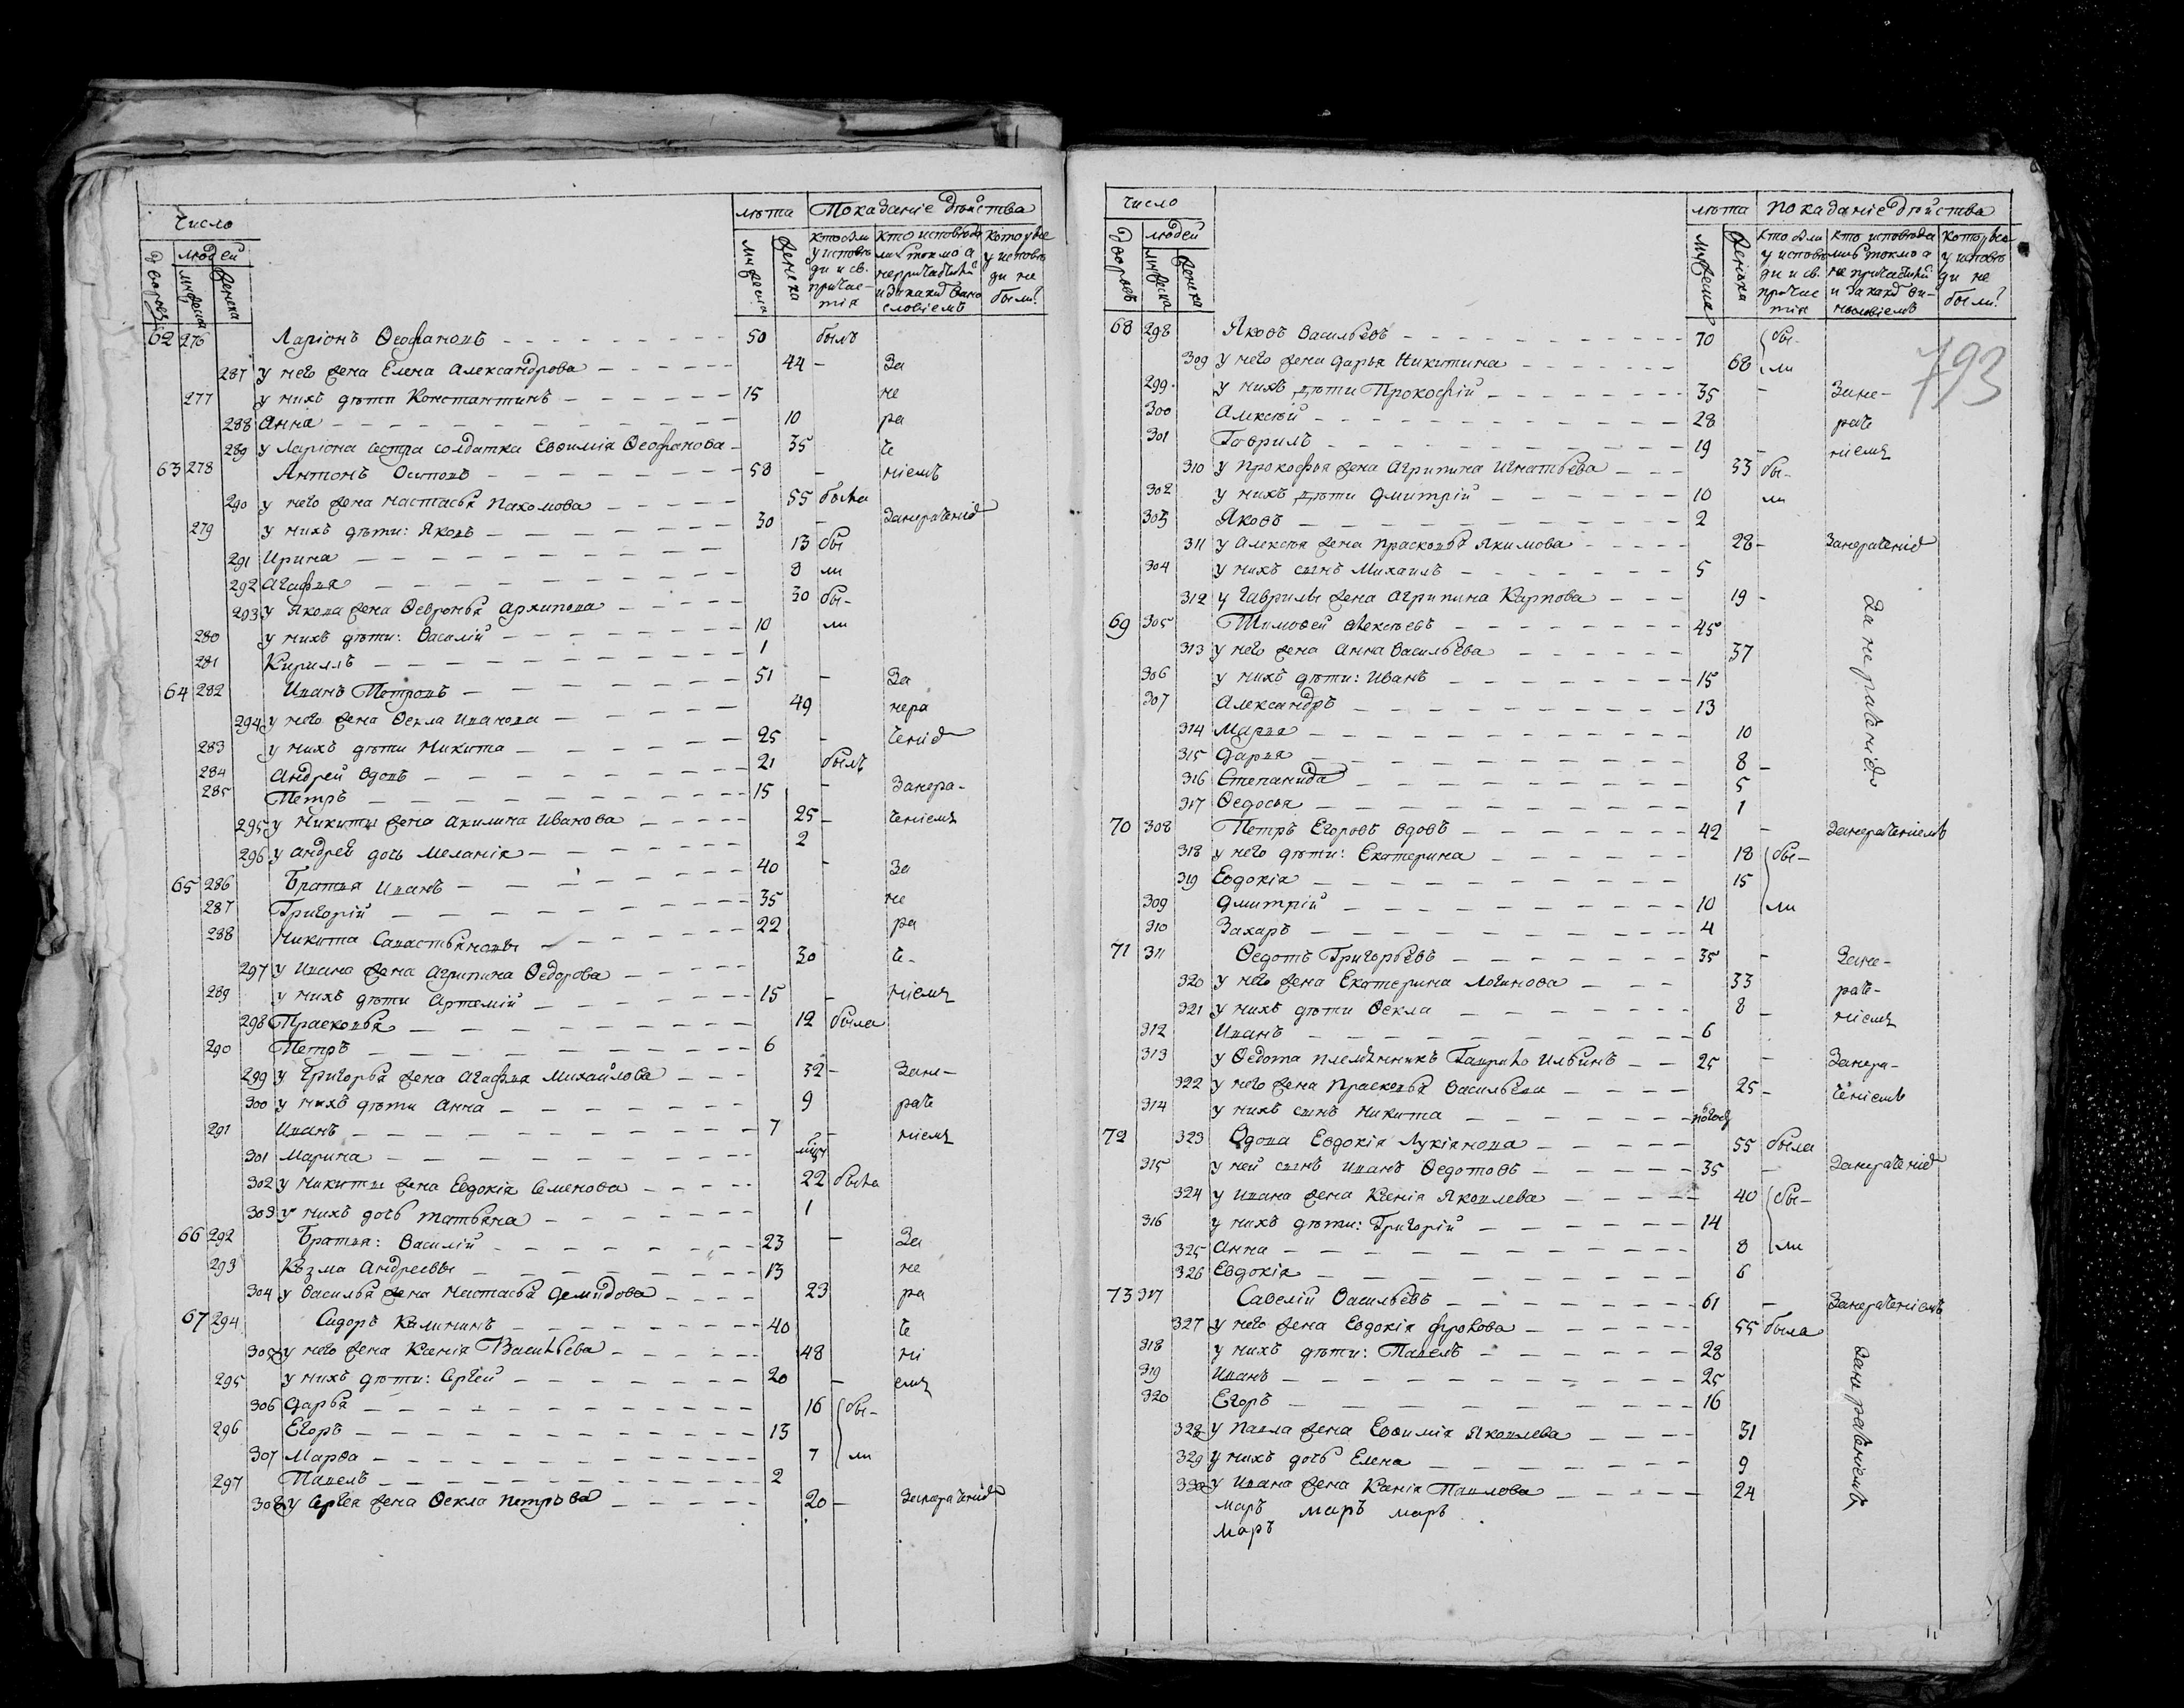 Число
лѣта Показаніе дѣйства
людей
дворовъ
мужеска
женска
мужеска
женска
кто были у исповѣди и св. причастія
кто исповѣдались токмо а не причастились и за какимъ винословіемъ
которые у исповѣди не были?
62 276 Ларіонъ Ѳеофановъ 50 былъ
287 у него жена Елена Александрова 44 - За
277 у нихъ дѣти Константинъ 15 не
288 Анна 10 ра
289 у Ларіона сестра солдатка Евѳимія Ѳеофанова 35 че
63 278 Антонъ Осиповъ 58 - ніемъ
290 у него жена Настасья Пахомова 55 была
279 у нихъ дѣти: Яковъ 30 - Занераченіе
291 Ирина 13 бы
292 Агафья 8 ли
293 у Якова жена Ѳевронья Архипова 30 бы-
280 у нихъ дѣти: Василій 10 ли
281 Кириллъ 1
64 282 Иванъ Петровъ 51 - За
294 у него жена Ѳекла Иванова 49 нера
283 у нихъ дѣти Никита 25 - ченіе
284 Андрей вдовъ 21 былъ
285 Петръ 15 - Занера-
295 у Никиты жена Акилина Иванова 25 - ченіемъ
296 у Андрей дочь Меланія 2
65 286 Братья Иванъ 40 - За
287 Григорій 35 не
288 Никита Савастьяновы 22 ра
297 у Ивана жена Агрипина Ѳедорова 30 че-
289 у нихъ дѣти Артемій 15 - ніемъ
298 Прасковья 12 была
290 Петръ 6
299 у Григорья жена Агафья Михайлова 32 - Зане-
300 у нихъ дѣти Анна 9 раче
291 Иванъ 7 - ніемъ
301 Марина
302 у Никиты жена Евдокія Семенова 22 была
303 у нихъ дочь Татьяна 1
66 292 Братья: Василій 23 - За
293 Козма Андреевы 13 не
304 у Василья жена Настасья Демидова 23 ра
67 294 Сидоръ Калининъ 40 че
305 у него жена Ксенія Васильева 48 ні
295 у нихъ дѣти: Сргѣй 20 - емъ
306 Дарья 16 бы-
296 Егоръ 13
307 Марѳа 7 ли
297 Павелъ 2
308 у Сргѣя жена Ѳекла Петрова 20 - Занераченіе
Число
лѣта Показаніе дѣйства
людей
дворовъ
мужеска
женска
мужеска
женска
кто были у исповѣди и св. причастія
кто исповѣдались токмо а не причастились и за какимъ винословіемъ
которые у исповѣди не были?
793
68 298 Яковъ Васильевъ 70 бы-
309 у него жена Дарья Никитина 68 ли
299 у нихъ дѣти Прокофій 35 - Зане-
300 Алексѣй 28 раче
301 Гаврилъ 19 - ніемъ
310 у Прокофья жена Агрипина Игнатьева 33 бы-
302 у нихъ дѣти Дмитрій 10 ли
303 Яковъ 2
311 у Алексѣя жена Прасковья Якимова 28 - Занераченіе
304 у нихъ сынъ Михаилъ 5
312 у Гаврилы жена Агрипина Карпова 19 -
69 305 Тимоѳей Алексѣевъ 45
313 у него жена Анна Васильева 37
306 у нихъ дѣти: Иванъ 15
307 Александръ 13
314 Марья 10
315 Дарья 8 -
316 Степанида 5
317 Ѳедосья 1
Занераченіе
70 308 Петръ Егоровъ вдовъ 42 - Занераченіемъ
318 у него дѣти: Екатерина 18 бы-
319 Евдокія 15
309 Дмитрій 10 ли
310 Захаръ 4
71 311 Ѳедотъ Григорьевъ 35 - Зане-
320 у него жена Екатерина Логинова 33 раче-
321 у нихъ дѣти Ѳекла 8 - ніемъ
312 Иванъ 6
313 у Ѳедота племянникъ Гаврило Ильинъ 25 - Занера-
322 у него жена Прасковья Васильева 25 - ченіемъ
314 у нихъ сынъ Никита полгода
72 323 Вдова Евдокія Лукіянова 55 была
315 у ней сынъ Иванъ Ѳедотовъ 35 - Занераченіе
324 у Ивана жена Ксенія Яковлева 40 бы-
316 у нихъ дѣти: Григорій 14
325 Анна 8 ли
326 Евдокія 6
73 317 Савелій Васильевъ 61 - Занераченіемъ
327 у него жена Евдокія Фролова 55 была
318 у нихъ дѣти: Павелъ 28
319 Иванъ 25
320 Егоръ 16
328 у Павла жена Евѳимія Яковлева 31
329 у нихъ дочь Елена 9
330 у Ивана жена Ксенія Павлова 24
Занераченіемъ
маръ маръ маръ
маръ